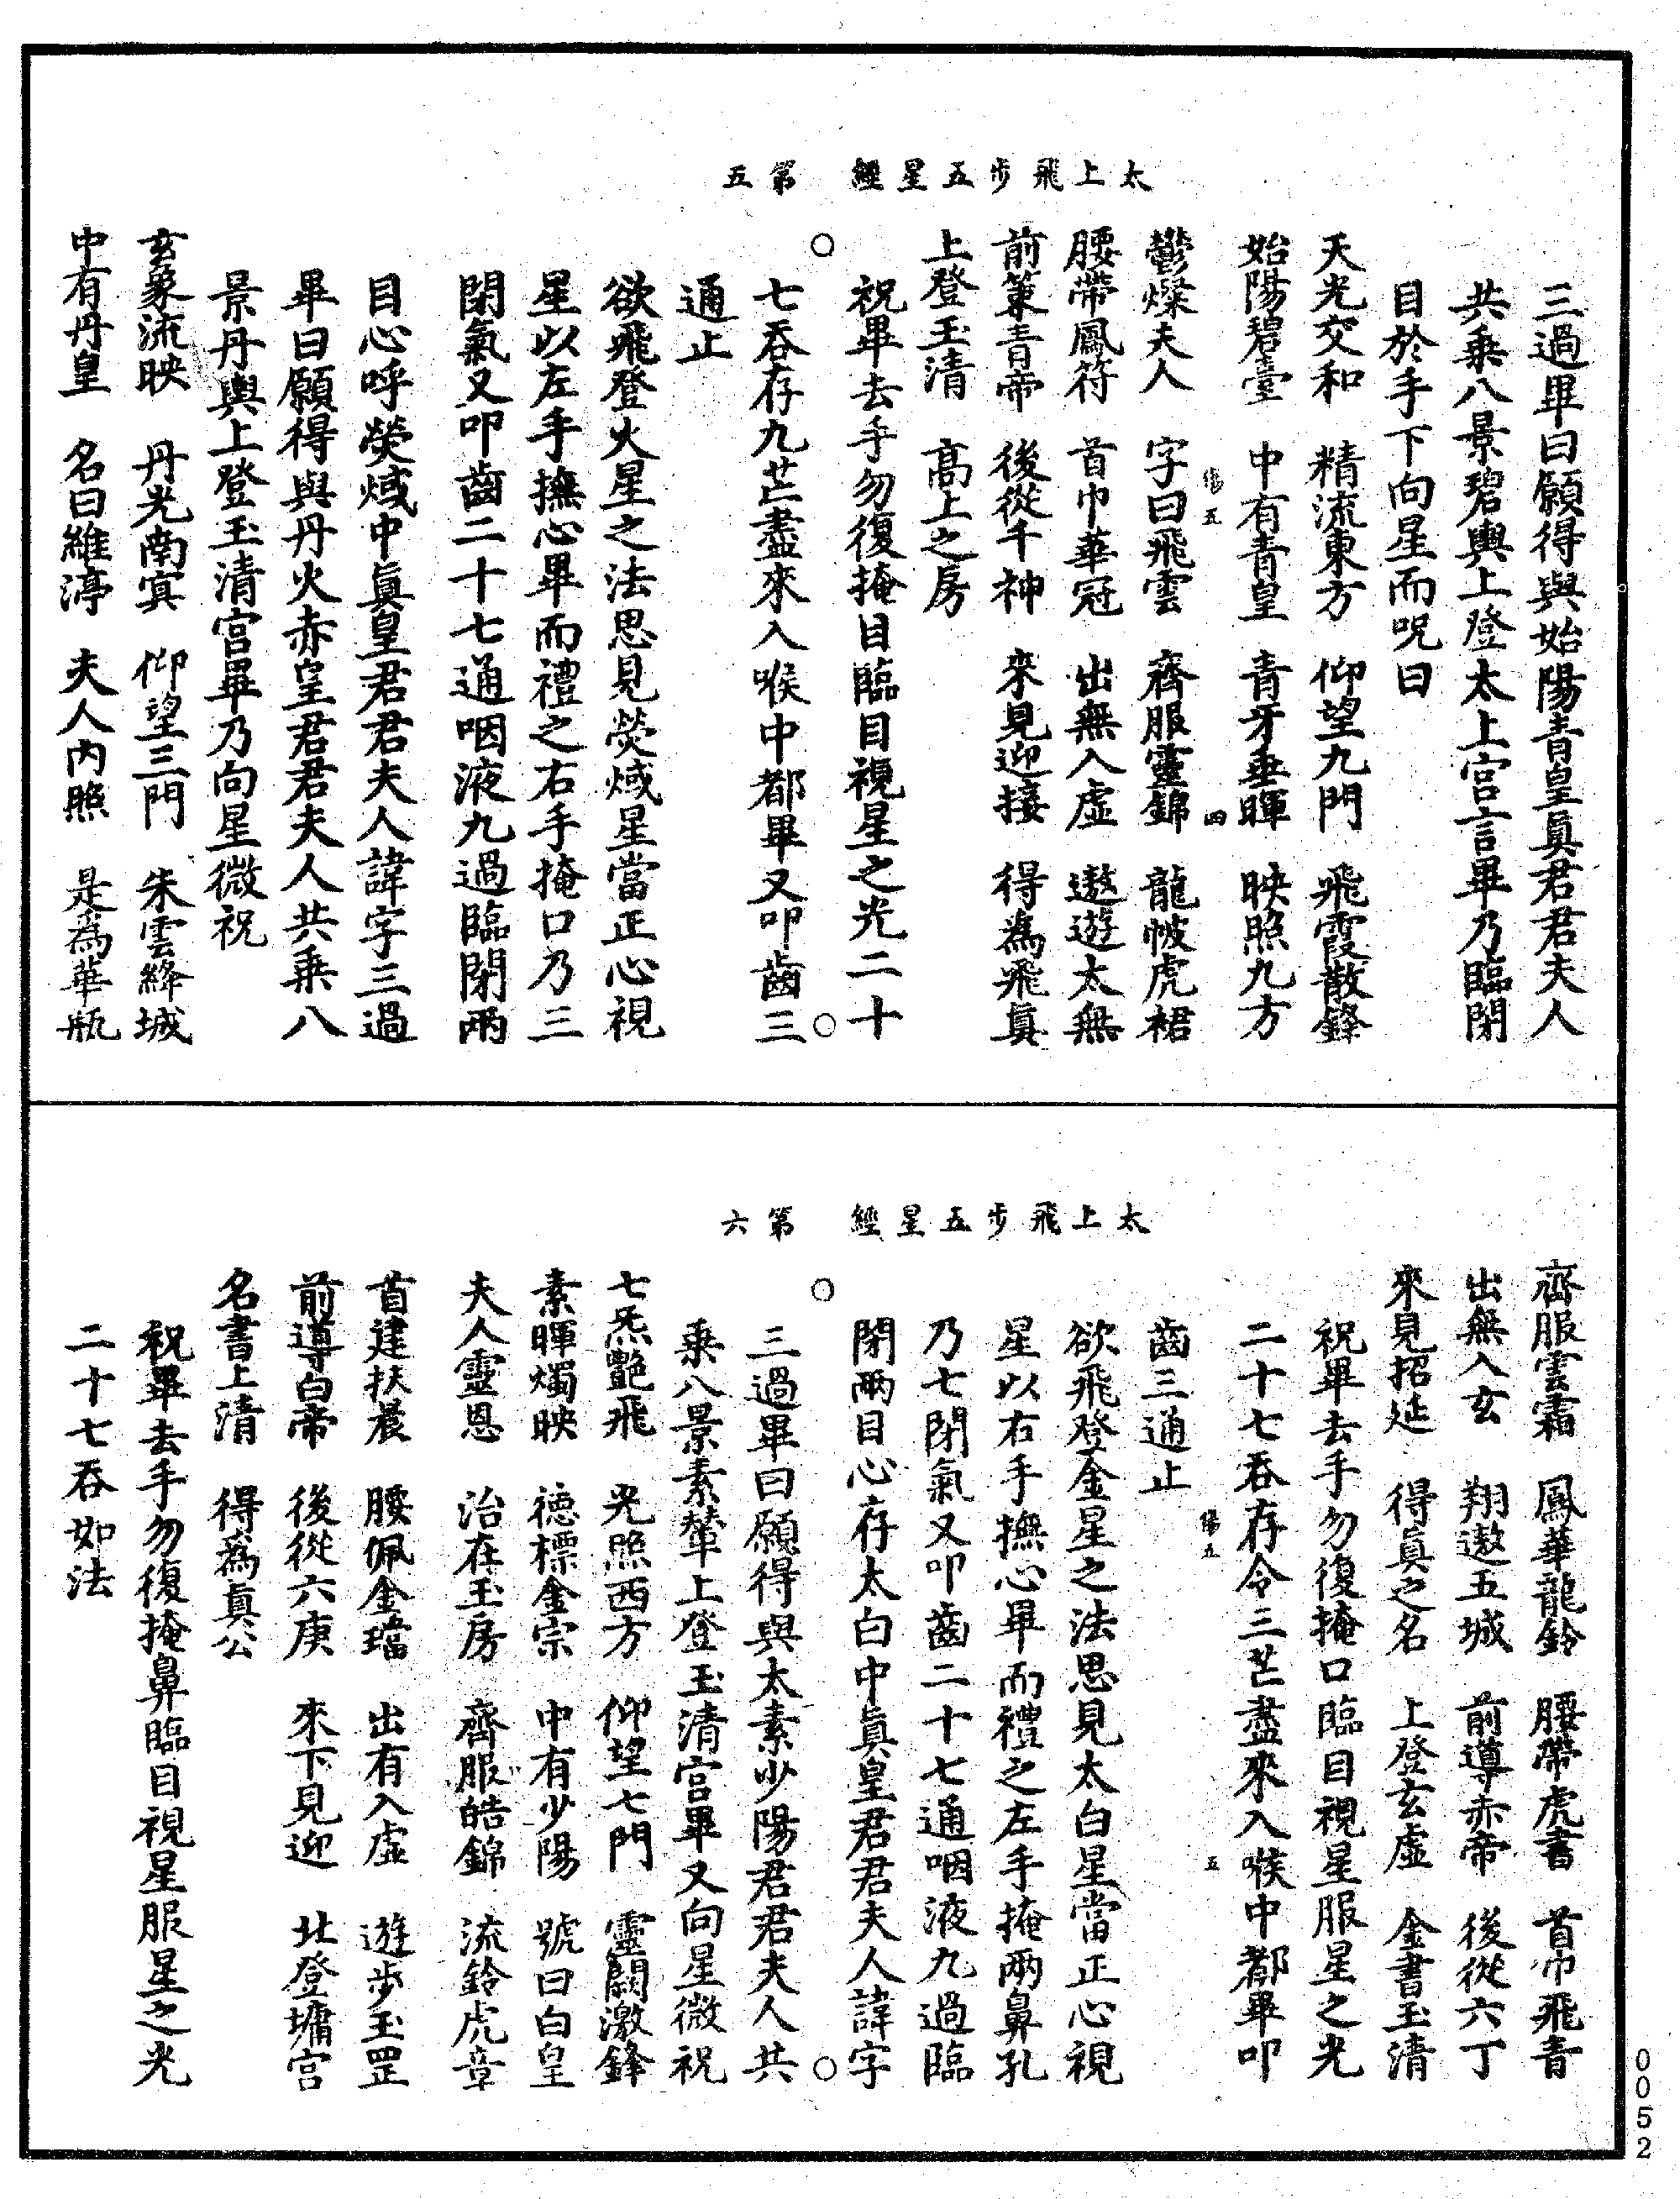 太上飛步五星經　第五
三過畢曰願得與始陽青皇真君君夫人
共乘八景碧輿上登太上宮言畢乃臨閉
目於手下向星而呪曰
天光交和　精流東方　仰望九門　飛霞散鋒
始陽碧臺　中有青皇　青牙垂暉　映照九方
傷五　四
鬱燦夫人　字曰飛雲　齊服靈錦　龍帔虎裙
腰帶鳳符　首巾華冠　出無入虛　遨遊太無
前策青帝　後從千神　來見迎接　得為飛真
上登玉清　高上之房
祝畢去手勿復掩目臨目視星之光二十
七吞存九芒盡來入喉中都畢又叩齒三
通止
欲飛登火星之法思見熒惑星當正心視
星以左手撫心畢而禮之右手掩口乃三
閉氣又叩齒二十七通咽液九過臨閉兩
目心呼熒惑中真皇君君夫人諱字三過
畢曰願得與丹火赤皇君君夫人共乘八
景丹輿上登玉清宮畢乃向星微祝
玄象流映　丹光南冥　仰望三門　朱雲絳城
中有丹皇　名曰維渟　夫人內照　是為華瓶
太上飛步五星經　第六
齊服雲霜　鳳華龍鈴　腰帶虎書　首巾飛青
出無入玄　翔遨五城　前導赤帝　後從六丁
來見招延　得真之名　上登玄虛　金書玉清
祝畢去手勿復掩口臨目視星服星之光
二十七吞存令三芒盡來入喉中都畢叩
傷五　五
齒三通止
欲飛登金星之法思見太白星當正心視
星以右手撫心畢而禮之左手掩兩鼻孔
乃七閉氣又叩齒二十七通咽液九過臨
閉兩目心存太白中真皇君君夫人諱字
三過畢曰願得與太素少陽君君夫人共
乘八景素輦上登玉清宮畢又向星微祝
七炁艷飛　光照西方　仰望七門　靈闕激鋒
素暉燭映　德標金宗　中有少陽　號曰白皇
夫人靈恩　治在玉房　齊服皓錦　流鈴虎章
首建扶晨　腰佩金璫　出有入虛　遊步玉罡
前導白帝　後從六庚　來下見迎　北登墉宮
名書上清　得為真公
祝畢去手勿復掩鼻臨目視星服星之光
二十七吞如法
0052